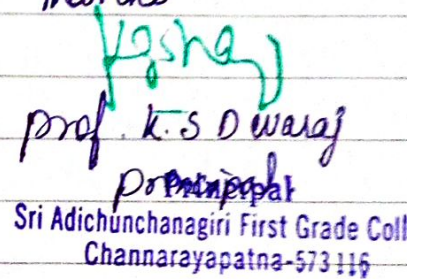 prof. K. S Dwaraj
principal
Principal
Sri Adichunchanagiri First Grade Coll
Channarayapatna-573116